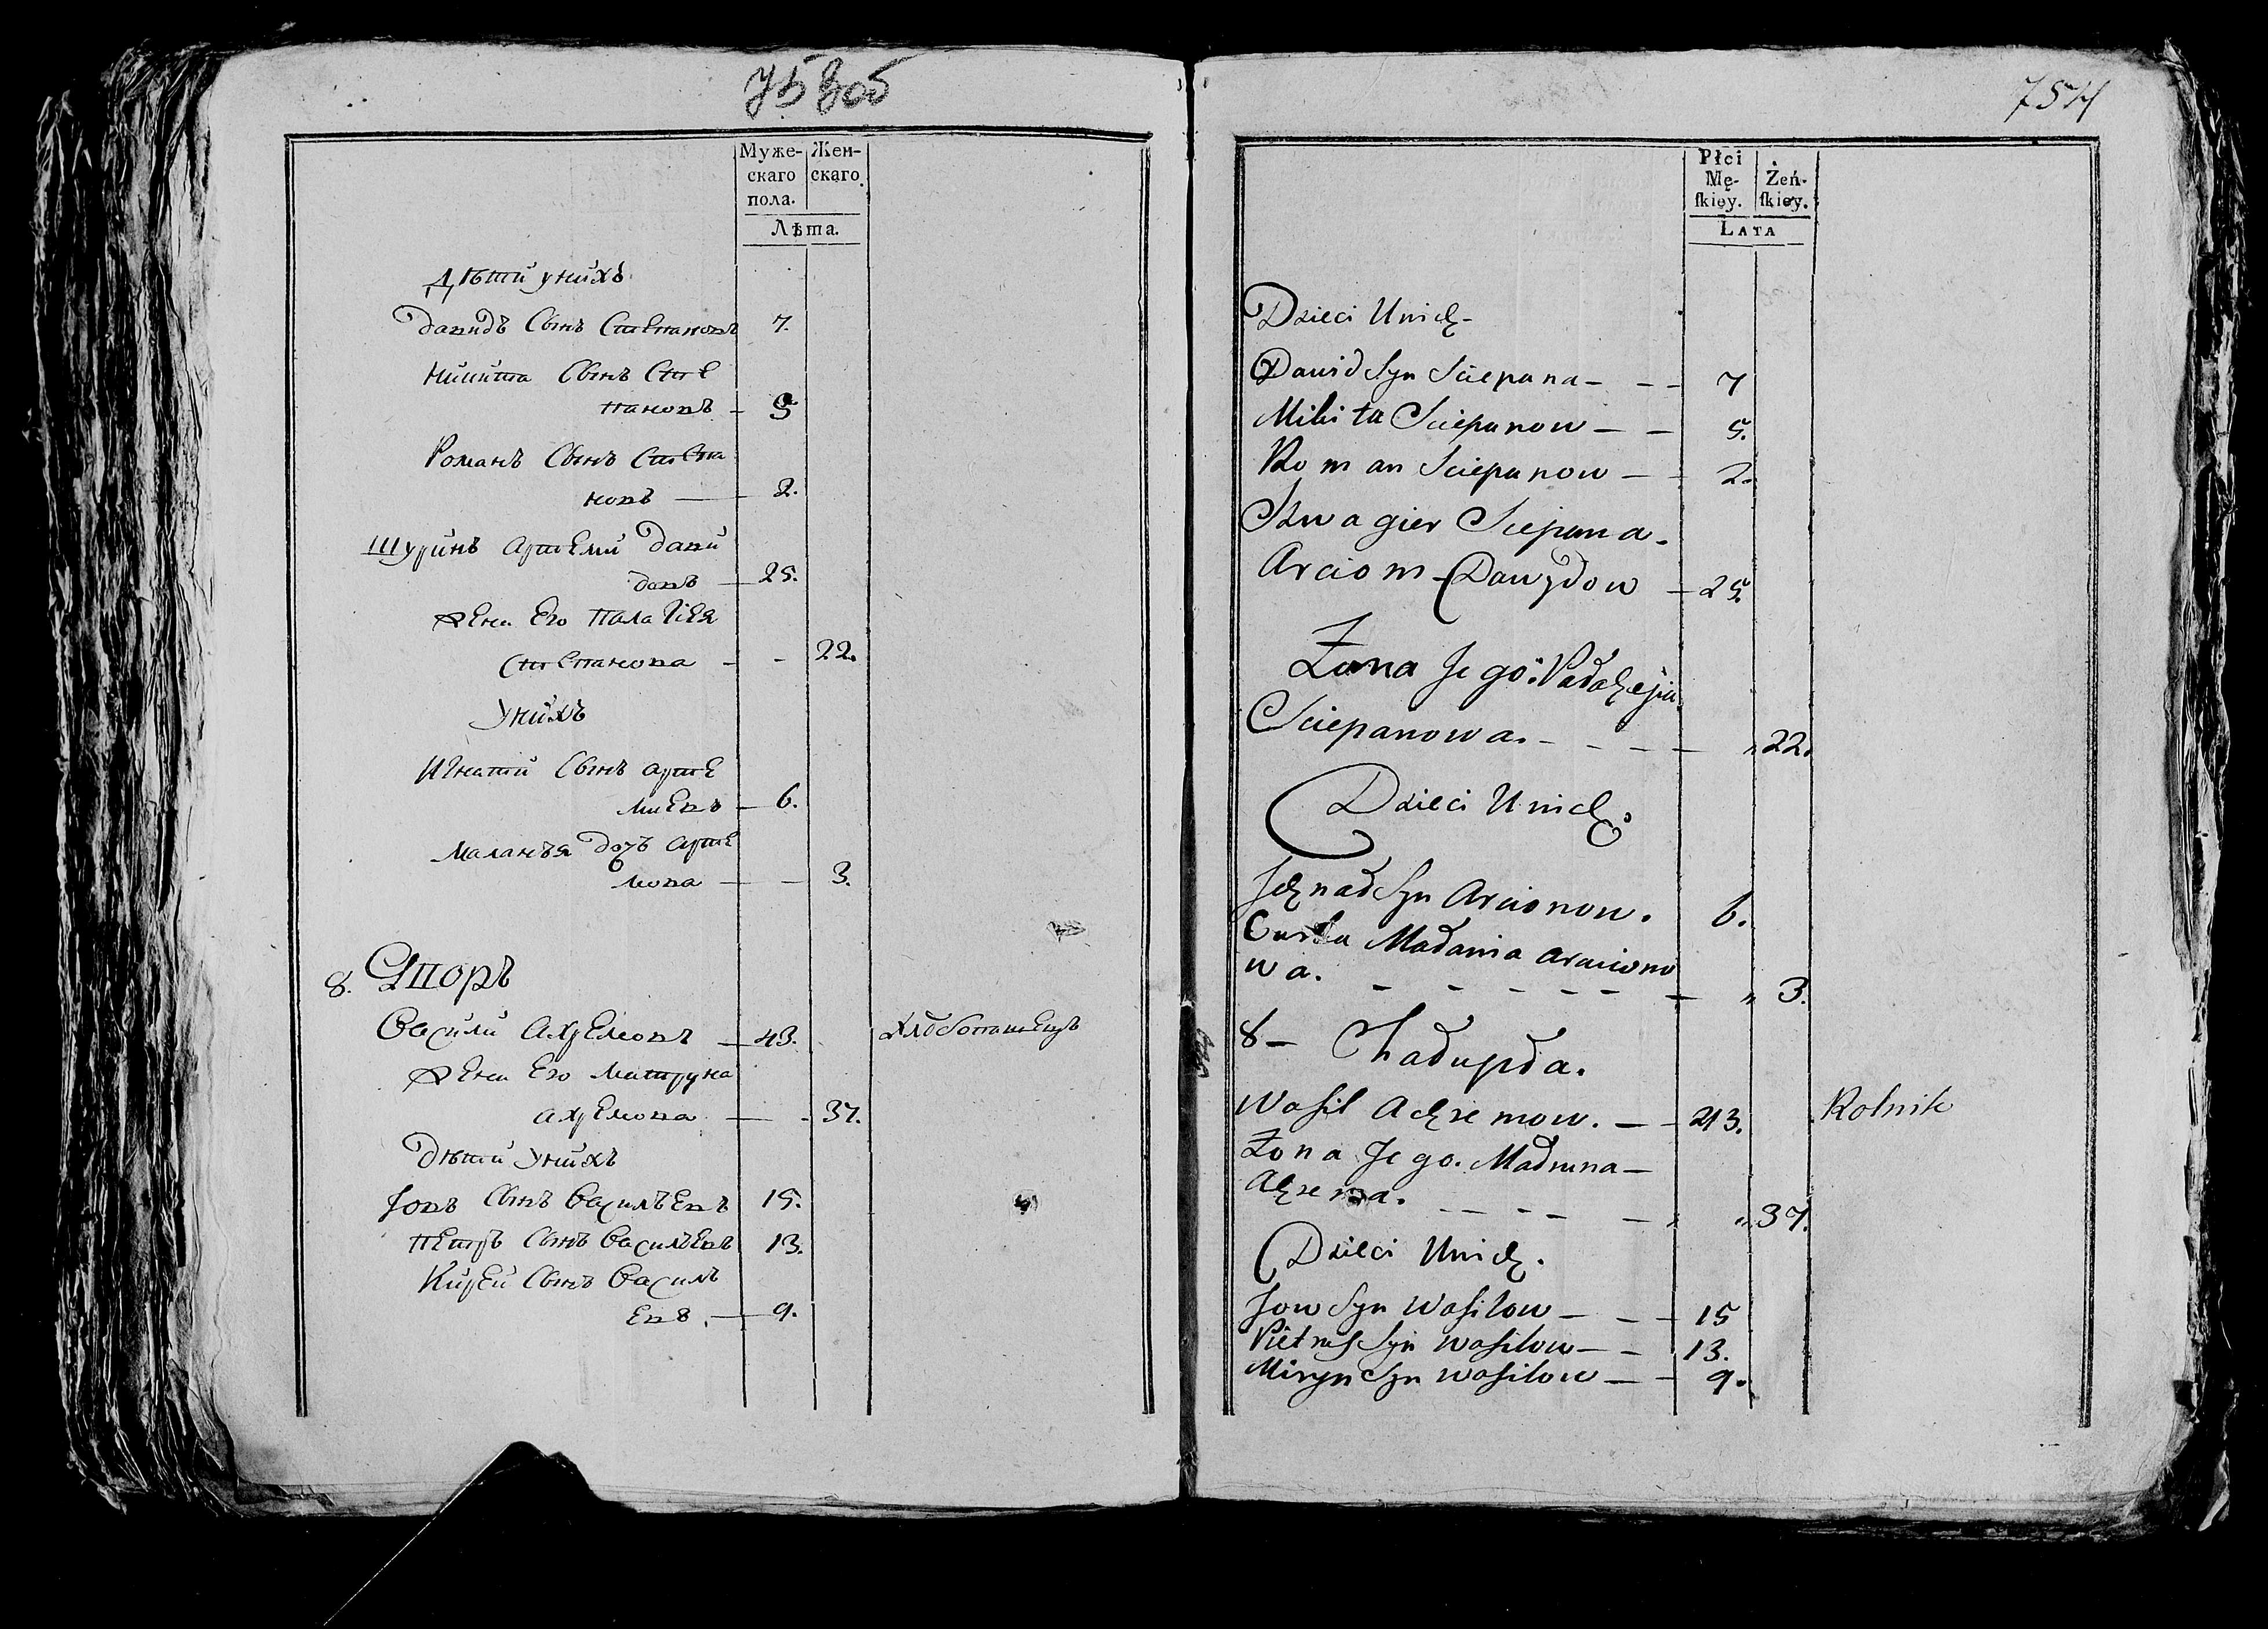 753 об
Муже-
скаго
пола.
Жен-
скаго
Лѣта.
Дѣти унихъ
давидъ Сынъ Степановъ 7.
Никита Сынъ Сте
пановъ - 5
Романъ Сынъ Степа
новъ — 2.
Шуринъ артеми дави
довъ — 25.
Жена Его палагея
Степанова - - 22.
Унихъ
Игнатй Сынъ арте
миевъ — 6.
Маланъя дочъ арте
мова — — 3.
8. Дворъ
Василй Ахремовъ — 43. хлебопашецъ
Жена Его Матруна
ахремова — - 37.
дѣти Унихъ
Iовъ Сынъ Васильевъ 15.
петръ Сынъ Васильевъ 13.
Кирей Сынъ Василь
евъ. — 9.
754
Płci
Mę-
ſkiey.
Żeń-
ſkiey.
Lata
Dzieci Unich -
Dawid Syn Sciepana - - - 7
Mikita Sciepanow — — 5.
Roman Sciepanow — - 2.
Szwagier Sciepana.
Arciom Dawydow - 25.
Zona Jego: Pałacheja
Sciepanowa. - - - - — 22.
Dzieci Unich.
Jchnat Syn Arcionow. 6.
Curka Małania
wa. - - - - - — 3.
8 - Chałupa.
Wasil Achremow. — - 43. Rolnik
Zona Jego. Matruna —
37.
Dzieci Unich.
Jow Syn Wasilow — - - 15
Syn Wasilow — - 13.
Syn Wasilow — - 9.